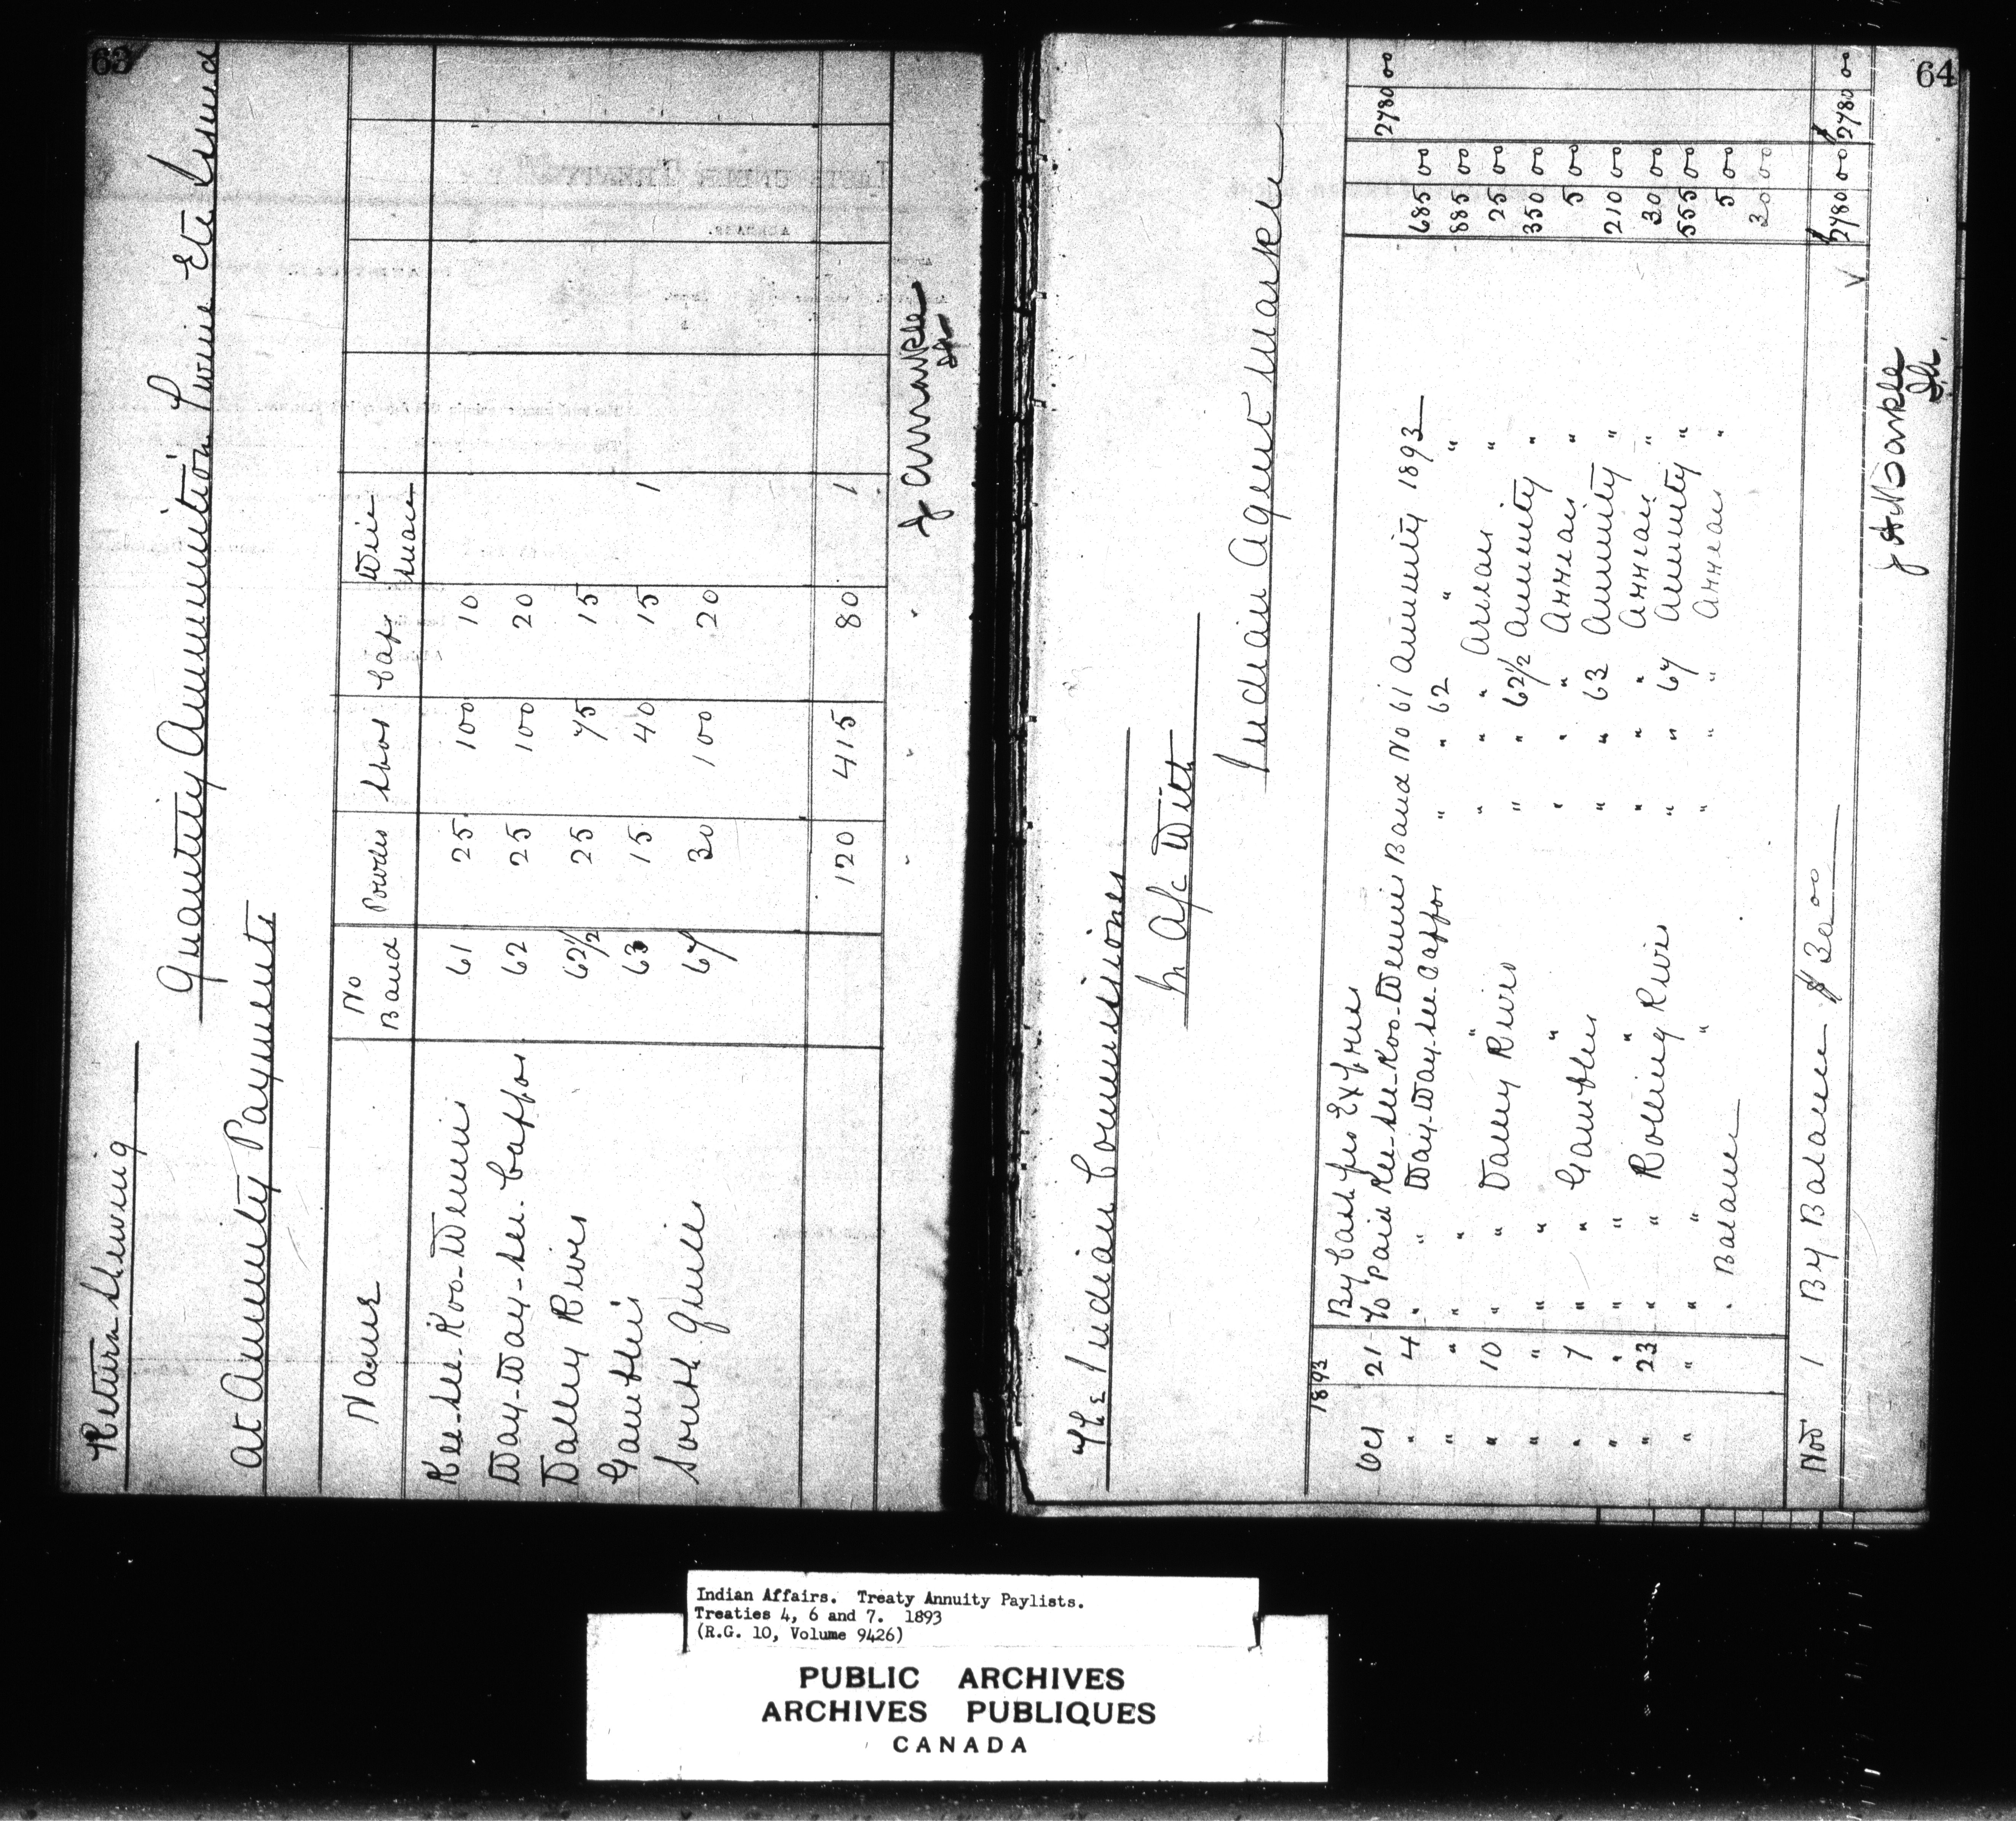 63
Return Shewing
Quantity Ammunition Twine Etc Issued
at Annuity Payments
Name No Band Powder Shot Caps Twine
Kee-see-Koo-Wenin 61 25 100 10
Way-Way-see-Cappo 62 25 100 20
Valley River 62½ 25 75 15
Gambler 63 15 40 15 1
South Quill 67 30 100 20
120 415 80 1
J A Markle
IA
64
The Indian Commissioner
In A/c With
Indian Agent Markle
1893
Oct 21 By Cash pro Express 2780 00
" 4 To Paid Kee-see-Koo-Wenin Band No 61 Annuity 1893 685 00
" " " " Way-Way-see-Cappo " " 62 " " 885 00
" 10 " " " " " " Arrears " 25 00
" " " " Valley River " " 62½ Annuity " 350 00
" 7 " " " " " " Arrears " 5 00
" " " " Gambler " " 63 Annuity " 210 00
" 23 " " " " " " Arrears " 30 00
" " " " Rolling River " " 67 Annuity " 555 00
" " " " " " " Arrears " 5 00
" Balance 30 00
$2780 00 $2780 00
Nov 1 By Balance $30 00
J A Markle
IA.
Indian Affairs. Treaty Annuity Paylists.
Treaties 4, 6 and 7. 1893
(R.G. 10, Volume 9426)
PUBLIC ARCHIVES
ARCHIVES PUBLIQUES
CANADA